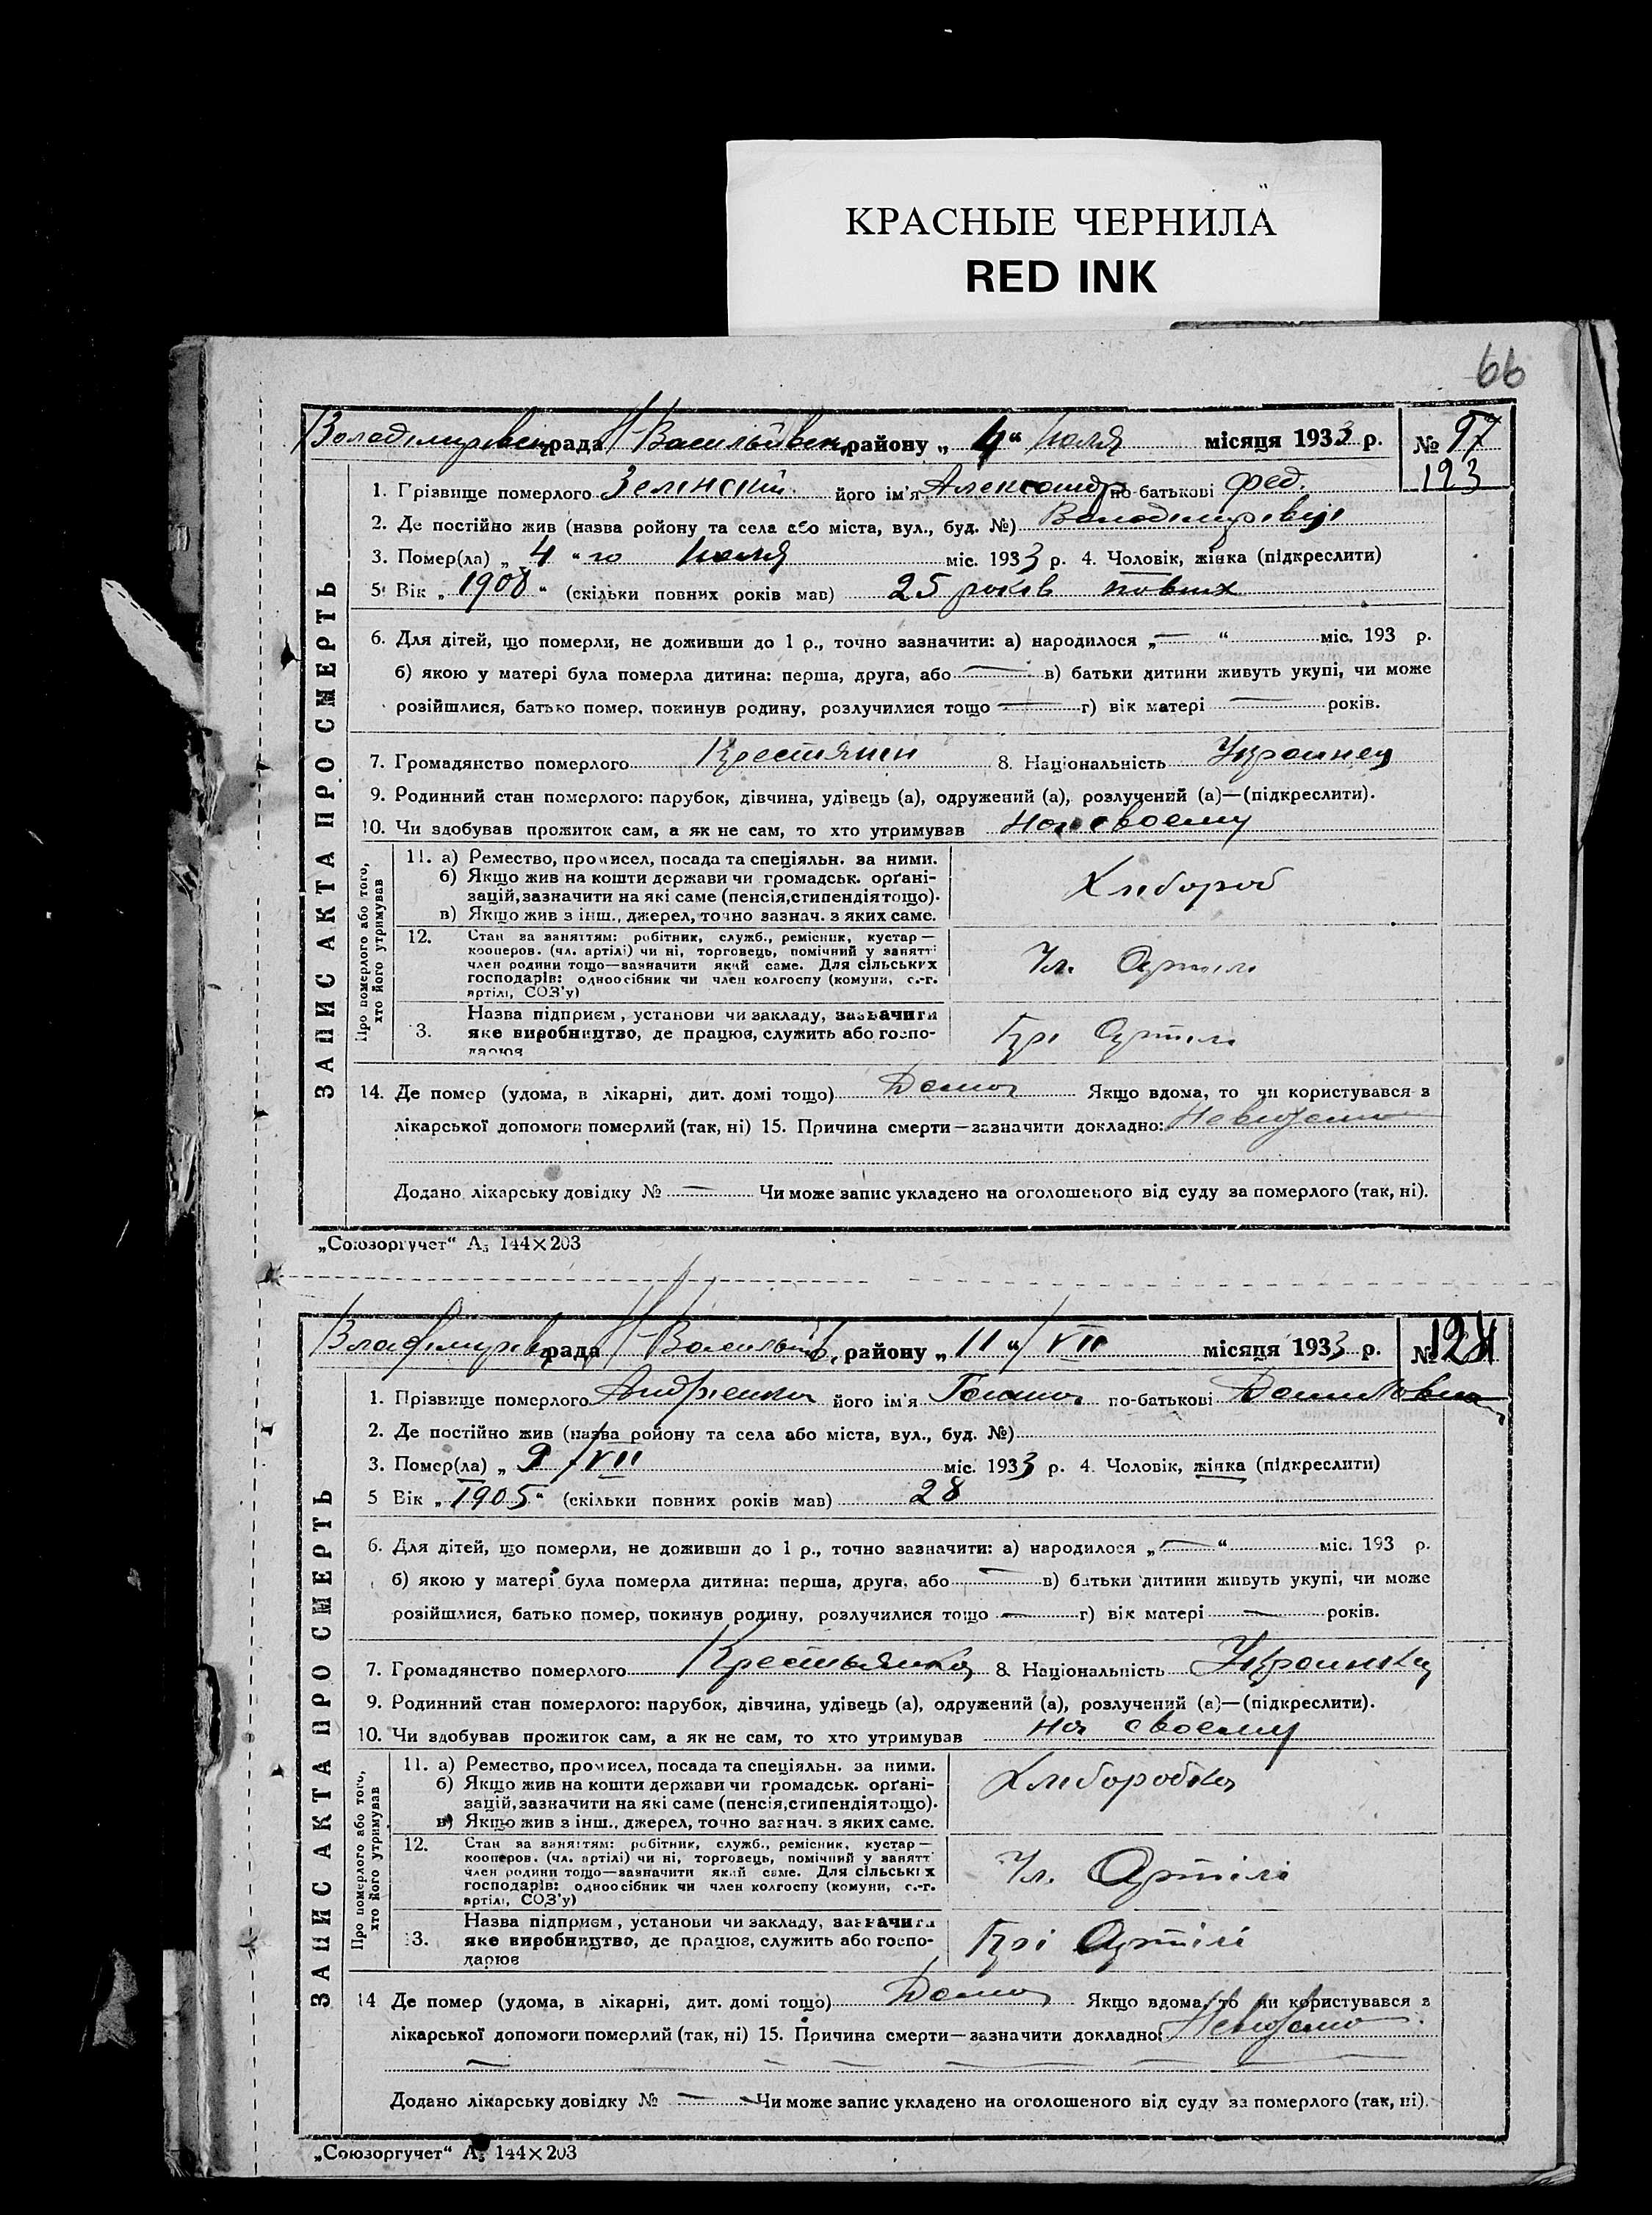 КРАСНЫЕ ЧЕРНИЛА
RED INK
66
Володимировск рада Н Васильівск, району „ 4 “ Июля місяця 1933 р. № 97
193
ЗАПИС АКТА ПРО СМЕРТЬ
1. Прізвище померлого Зелінский його ім'я Александр по-батькові Фед.
2. Де постійно жив (назва ройону та села або міста, вул., буд. №) Володимирівці
3. Помер(ла) „ 4 “ го Июля міс. 1933 р. 4. Чоловік, жінка (підкреслити)
5. Вік „ 1908 “ (скільки повних років мав) 25 років повних
6. Для дітей, що померли, не доживши до 1 р., точно зазначити: а) народилося „ — “ міс. 193 р.
б) якою у матері була померла дитина: перша, друга, або — в) батьки дитини живуть укупі, чи може
розійшлися, батько помер, покинув родину, розлучилися тощо — г) вік матері — років.
7. Громадянство померлого Крестянин 8. Національність Украинец
9. Родинний стан померлого: парубок, дівчина, удівець (а), одружений (а), розлучений (а)—(підкреслити).
10. Чи здобував прожиток сам, а як не сам, то хто утримував На своему
Про померлого або того, хто його утримував
11. а) Ремество, промисел, посада та спеціяльн. за ними.
б) Якщо жив на кошти держави чи громадськ. орґані-
зацій, зазначити на які саме (пенсія, стипендія тощо).
в) Якщо жив з інш., джерел, точно зазнач. з яких саме.
Хлебороб
12. Стан за заняттям: робітник, служб., ремісник, кустар—
кооперов. (чл. артілі) чи ні, торговець, помічний у занятті
член родини тощо—зазначити який саме. Для сільських
господарів: одноосібник чи член колгоспу (комуни, с.-г.
артілі, СОЗ'у)
Чл. Артили
3. Назва підприєм, установи чи закладу, зазначити
яке виробництво, де працює, служить або госпо-
дарює
Прі Артили
14. Де помер (удома, в лікарні, дит. домі тощо) Дома Якщо вдома, то чи користувався з
лікарської допомоги померлий (так, ні) 15. Причина смерти—зазначити докладно: Невідомо
Додано лікарську довідку № — Чи може запис укладено на оголошеного від суду за померлого (так, ні).
„Союзоргучет“ А₅ 144×203
Владимирів рада Н Васильів, району „ 11 “ / VII місяця 1933 р. № 124
ЗАПИС АКТА ПРО СМЕРТЬ
1. Прізвище померлого Андріенко його ім'я Ганна по-батькові Даниловна
2. Де постійно жив (назва ройону та села або міста, вул., буд. №)
3. Помер(ла) „ 9 / VII міс. 1933 р. 4. Чоловік, жінка (підкреслити)
5 Вік „ 1905 “ (скільки повних років мав) 28
6. Для дітей, що померли, не доживши до 1 р., точно зазначити: а) народилося „ — “ міс. 193 р.
б) якою у матері була померла дитина: перша, друга, або — в) батьки дитини живуть укупі, чи може
розійшлися, батько помер, покинув родину, розлучилися тощо — г) вік матері — років.
7. Громадянство померлого Крестьянка 8. Національність Украинка
9. Родинний стан померлого: парубок, дівчина, удівець (а), одружений (а), розлучений (а)—(підкреслити).
10. Чи здобував прожиток сам, а як не сам, то хто утримував На своему
Про померлого або того, хто його утримував
11. а) Ремество, промисел, посада та спеціяльн. за ними.
б) Якщо жив на кошти держави чи громадськ. орґані-
зацій, зазначити на які саме (пенсія, стипендія тощо).
в) Якщо жив з інш., джерел, точно зазнач. з яких саме.
Хлеборобка
12. Стан за заняттям: робітник, служб., ремісник, кустар—
кооперов. (чл. артілі) чи ні, торговець, помічний у занятті
член родини тощо—зазначити який саме. Для сільських
господарів: одноосібник чи член колгоспу (комуни, с.-г.
артілі, СОЗ'у)
Чл. Артілі
3. Назва підприєм, установи чи закладу, зазначити
яке виробництво, де працює, служить або госпо-
дарює
Прі Артілі
14 Де помер (удома, в лікарні, дит. домі тощо) Дома Якщо вдома, то чи користувався з
лікарської допомоги померлий (так, ні) 15. Причина смерти—зазначити докладно: Невідомо
Додано лікарську довідку № — Чи може запис укладено на оголошеного від суду за померлого (так, ні).
„Союзоргучет“ А₅ 144×203